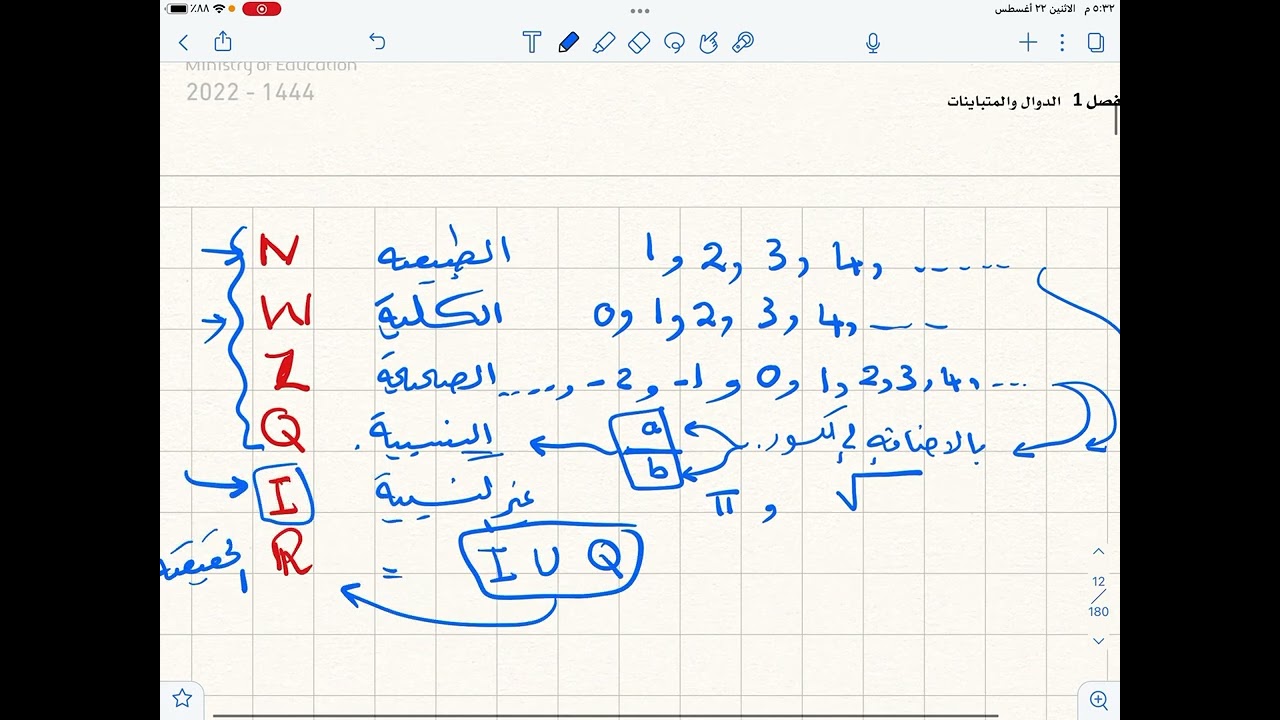 ٥:٣٢ م الاثنين ٢٢ أغسطس
٪٨٨
Ministry of Education
2022 - 1444
فصل 1 الدوال والمتباينات
N الطبيعية 1, 2, 3, 4, ......
W الكلية 0, 1, 2, 3, 4, ---
Z الصحيحة ...., -2, -1, 0, 1, 2, 3, 4, ...
Q النسبية. a/b بالاضافة إلى الكسور.
I غير نسبية π, √
الحقيقية R = I U Q
12
180